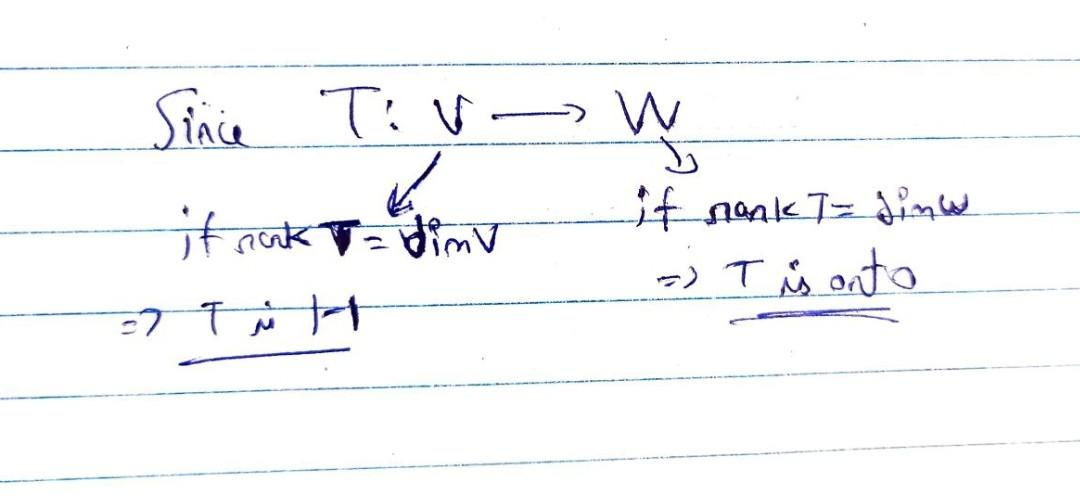 Since T: V → W
if rank T = dim V
if rank T = dim W
=> T is onto
=> T is 1-1